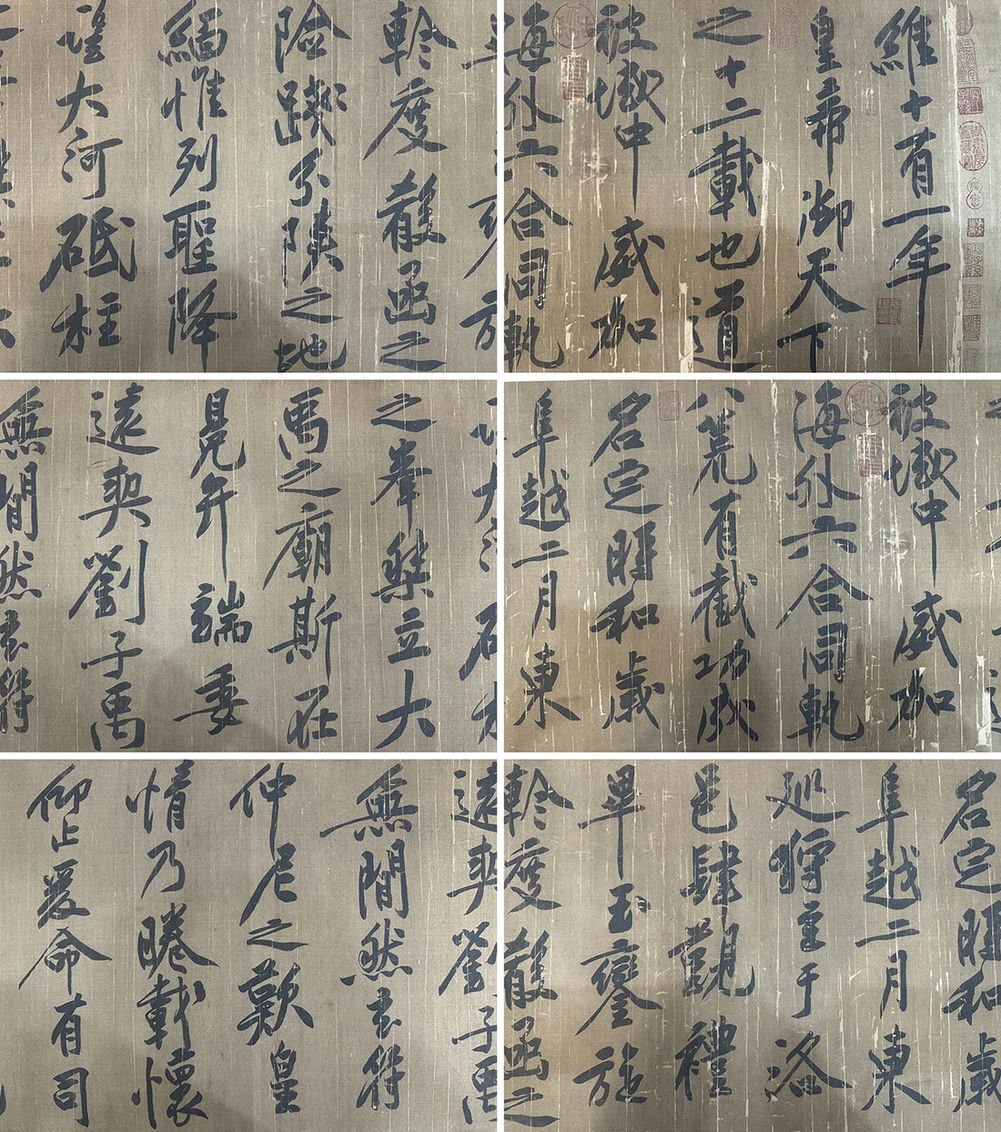 維十有一年
皇帝御天下
之十二載也道
被域中威加
海外六合同軌
被域中威加
海外六合同軌
八荒有截功成
名定時和歲
阜越二月東
名定時和歲
阜越二月東
巡狩至于洛
邑肆覲禮
畢玉鑾旋
軫度殽函之
軫度殽函之
險踐分陝之地
緬惟列聖降
望大河砥柱
之峯桀立大
禹之廟斯在
冕弁端委
遠契劉子禹
無間然玄符
遠契劉子禹
無間然玄符
仲尼之歎皇
情乃睠載懷
仰止爰命有司